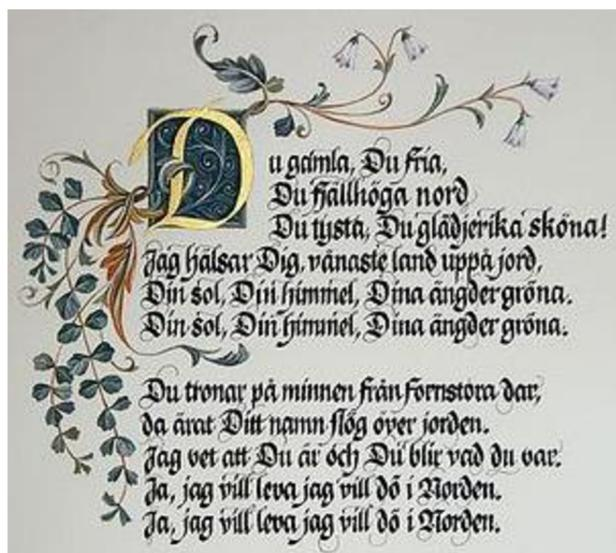 Du gamla, Du fria,
Du fjällhöga nord
Du tysta, Du glädjerika sköna!
Jag hälsar Dig, vänaste land uppå jord,
Din sol, Din himmel, Dina ängder gröna.
Din sol, Din himmel, Dina ängder gröna.
Du tronar på minnen från fornstora dar,
da ärat Ditt namn flög över jorden.
Jag vet att Du är och Du blir vad du var.
Ja, jag vill leva jag vill dö i Norden.
Ja, jag vill leva jag vill dö i Norden.